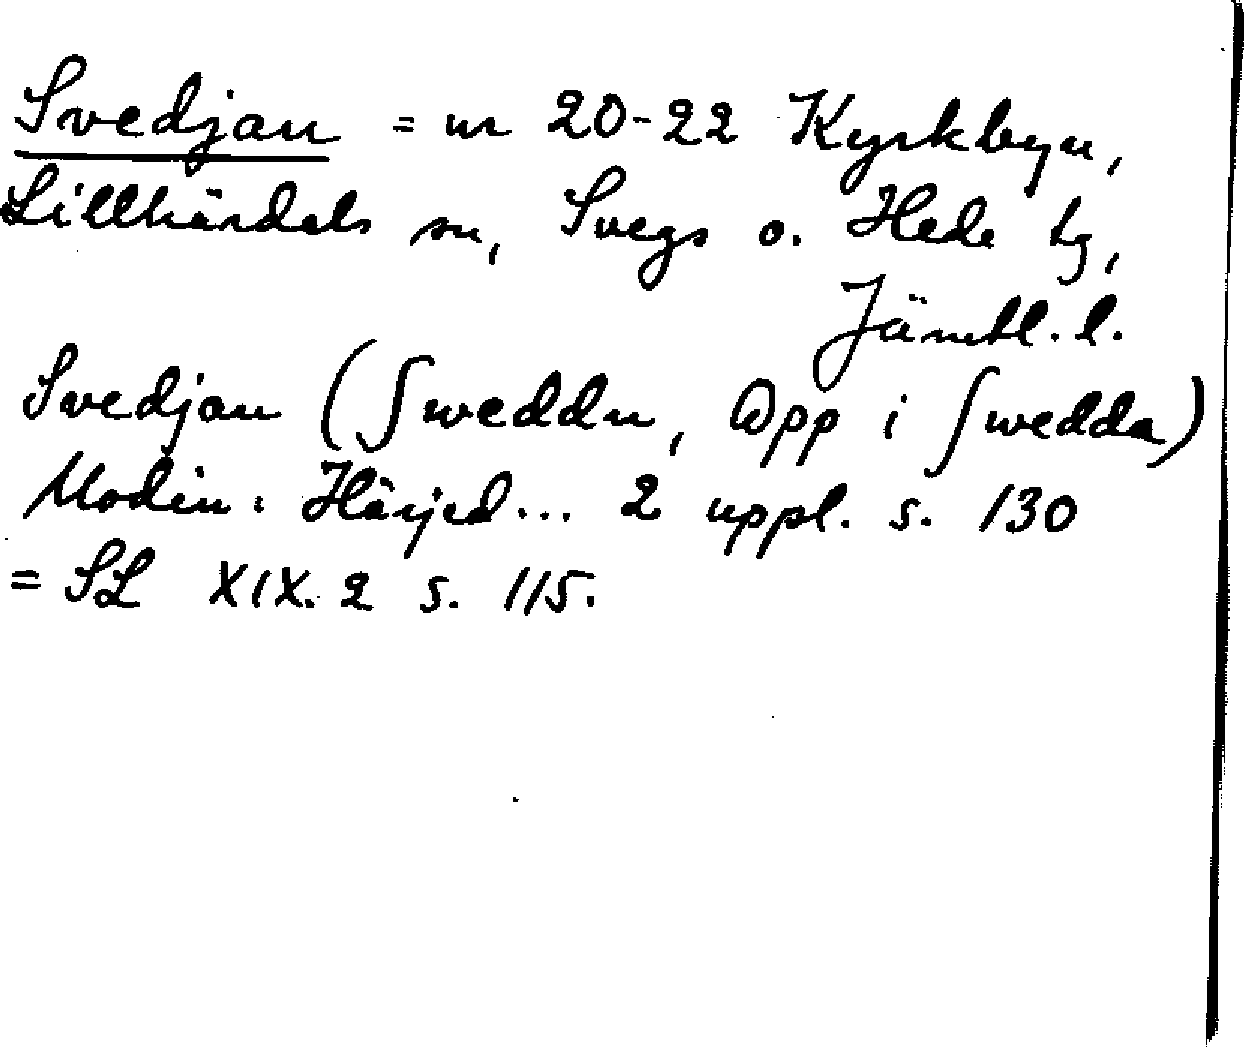 Svedjan = nr 20-22 Kyrkbyn,
Lillhärdals sn, Svegs o. Hede tg,
Jämtl. l.
Svedjan (ſweddn, Opp i ſwedda)
Modin: Härjed... 2 uppl. s. 130
= SL XIX. 2 s. 115.